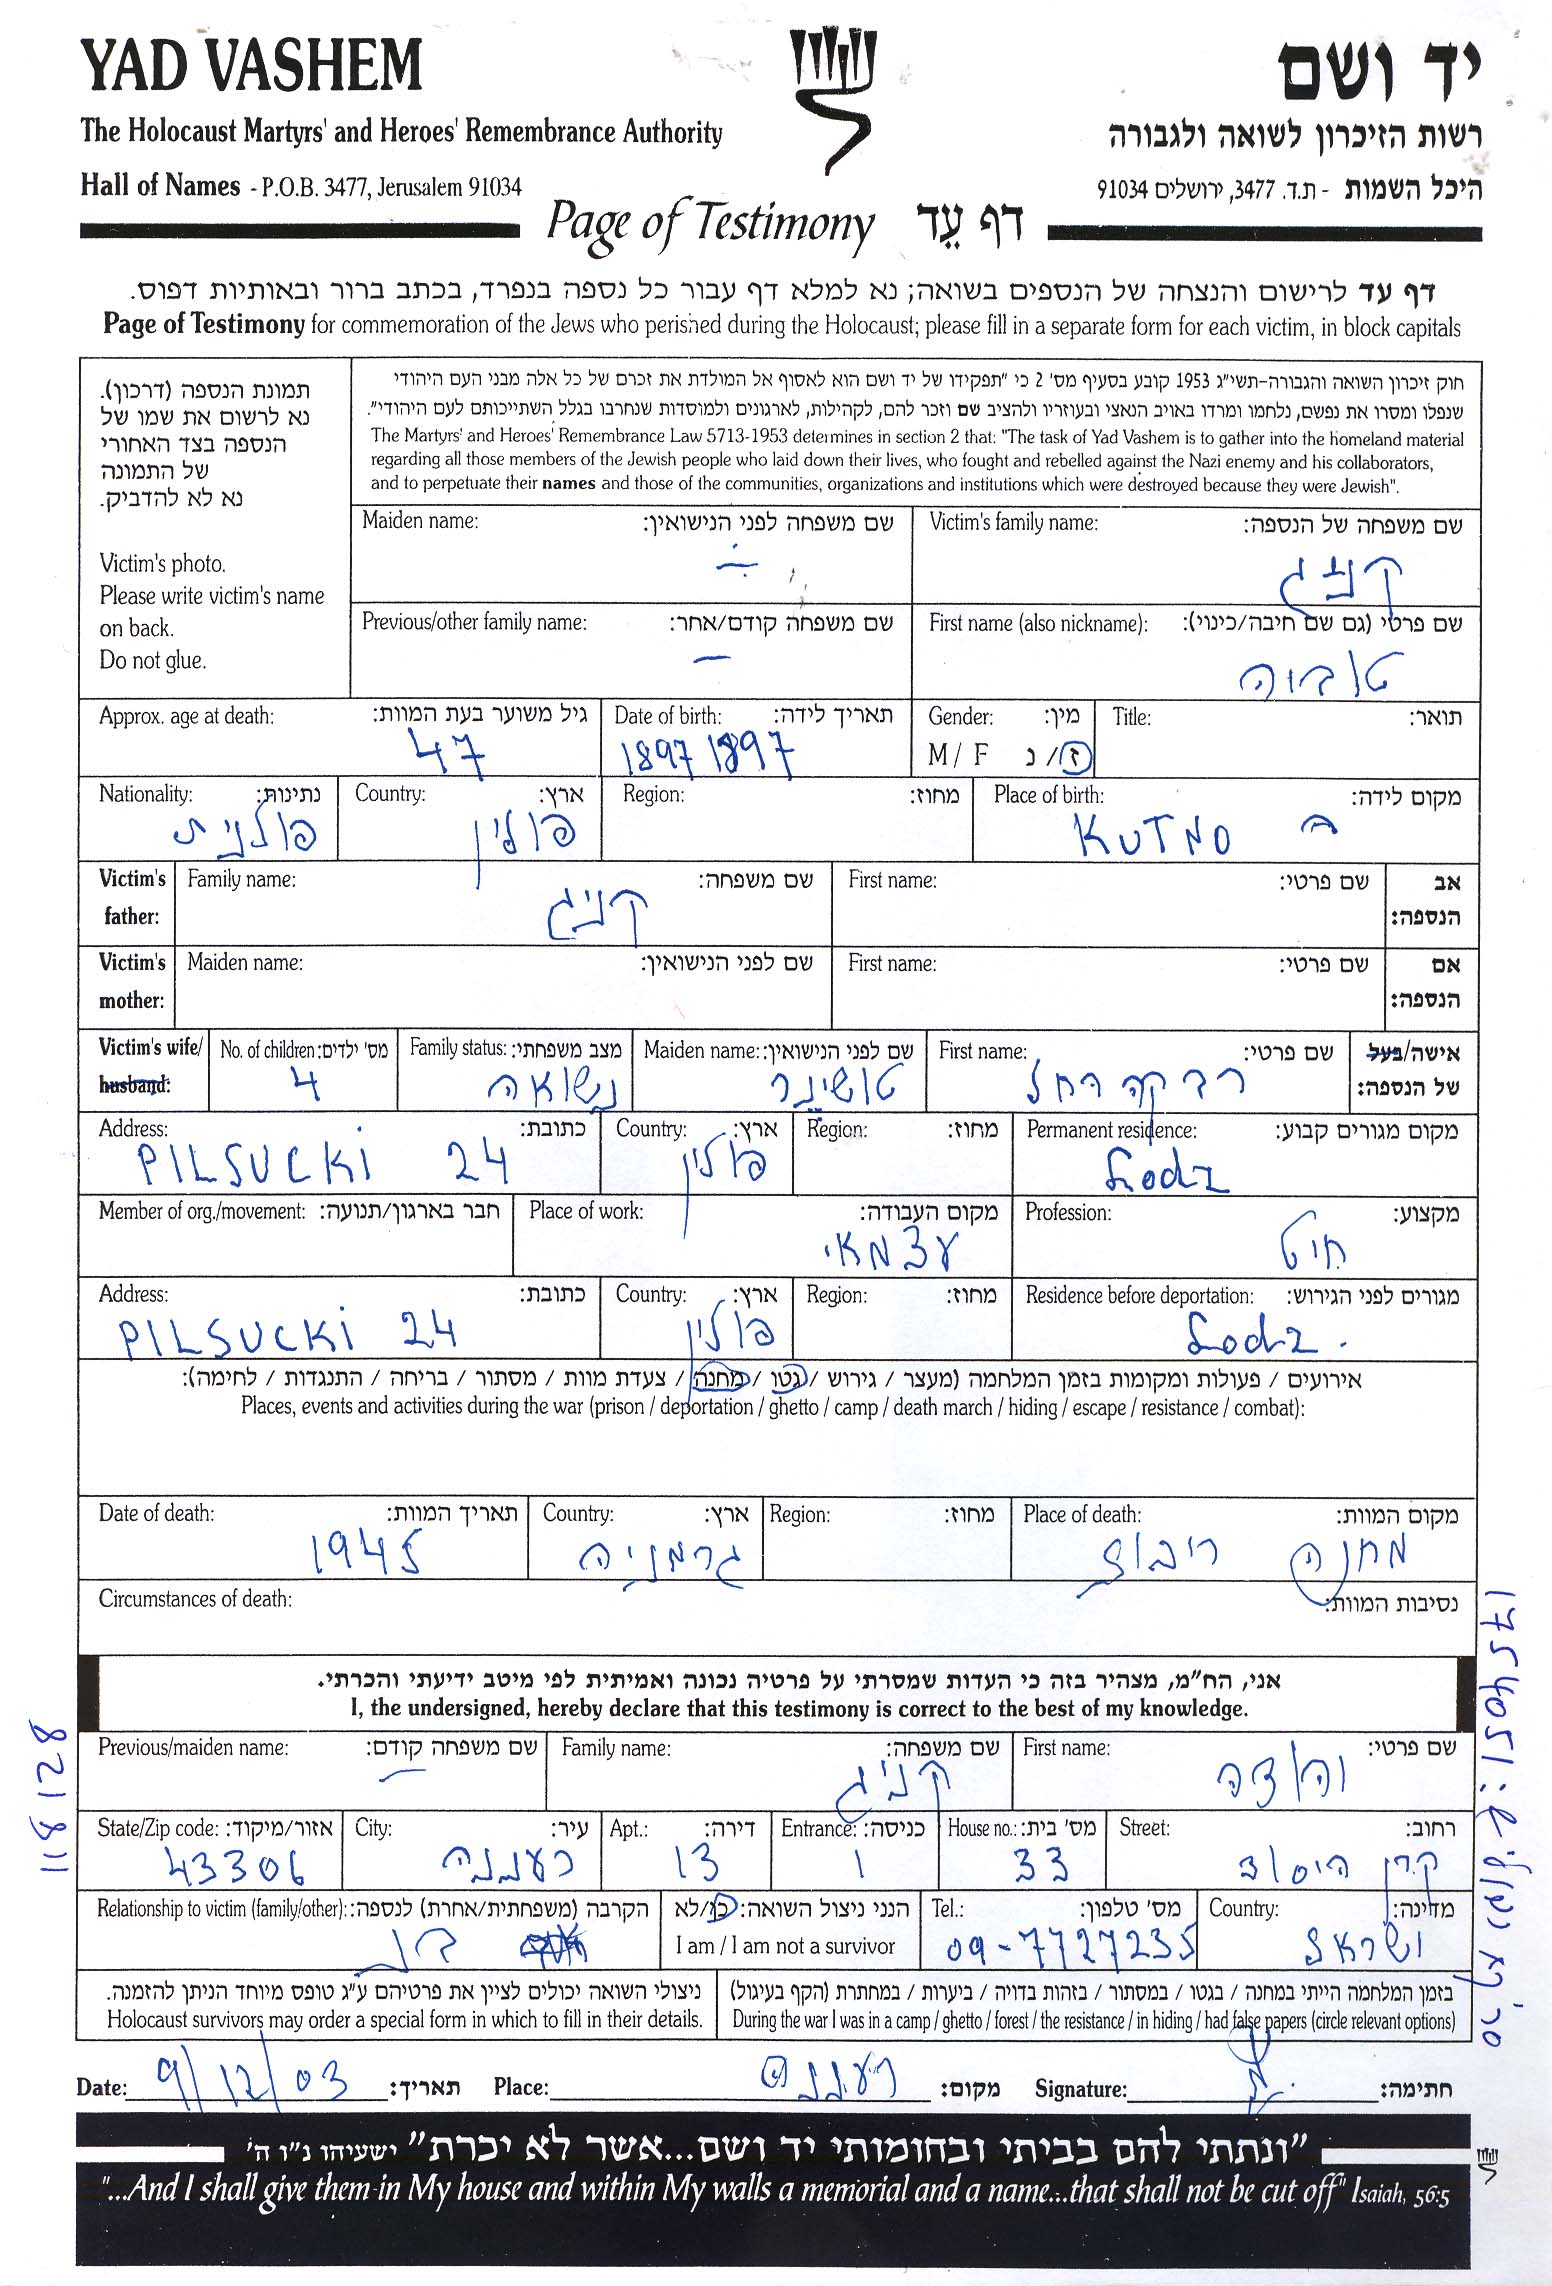 YAD VASHEM
יד ושם
The Holocaust Martyrs' and Heroes' Remembrance Authority
רשות הזיכרון לשואה ולגבורה
Hall of Names - P.O.B. 3477, Jerusalem 91034
היכל השמות - ת.ד. 3477, ירושלים 91034
Page of Testimony דף עֵד
דף עד לרישום והנצחה של הנספים בשואה; נא למלא דף עבור כל נספה בנפרד, בכתב ברור ובאותיות דפוס.
Page of Testimony for commemoration of the Jews who perished during the Holocaust; please fill in a separate form for each victim, in block capitals
תמונת הנספה (דרכון).
נא לרשום את שמו של
הנספה בצד האחורי
של התמונה
נא לא להדביק.
Victim's photo.
Please write victim's name
on back.
Do not glue.
חוק זיכרון השואה והגבורה-תשי"ג 1953 קובע בסעיף מס' 2 כי "תפקידו של יד ושם הוא לאסוף אל המולדת את זכרם של כל אלה מבני העם היהודי
שנפלו ומסרו את נפשם, נלחמו ומרדו באויב הנאצי ובעוזריו ולהציב שם וזכר להם, לקהילות, לארגונים ולמוסדות שנחרבו בגלל השתייכותם לעם היהודי".
The Martyrs' and Heroes' Remembrance Law 5713-1953 determines in section 2 that: "The task of Yad Vashem is to gather into the homeland material
regarding all those members of the Jewish people who laid down their lives, who fought and rebelled against the Nazi enemy and his collaborators,
and to perpetuate their names and those of the communities, organizations and institutions which were destroyed because they were Jewish".
Maiden name: שם משפחה לפני הנישואין:
Victim's family name: שם משפחה של הנספה:
קניג
Previous/other family name: שם משפחה קודם/אחר:
First name (also nickname): שם פרטי (גם שם חיבה/כינוי):
טוביה
Approx. age at death: גיל משוער בעת המוות:
47
Date of birth: תאריך לידה:
1897 1897
Gender: מין:
M / F ז/ נ
Title: תואר:
Nationality: נתינות:
פולנית
Country: ארץ:
פולין
Region: מחוז:
Place of birth: מקום לידה:
KUTNO ב
Victim's father:
Family name: שם משפחה:
קניג
First name: שם פרטי:
אב הנספה:
Victim's mother:
Maiden name: שם לפני הנישואין:
First name: שם פרטי:
אם הנספה:
Victim's wife/ husband:
No. of children: מס' ילדים:
4
Family status: מצב משפחתי:
נשואה
Maiden name: שם לפני הנישואין:
טושינר
First name: שם פרטי:
רבקה רחל
אישה/בעל של הנספה:
Address: כתובת:
PILSUCKI 24
Country: ארץ:
פולין
Region: מחוז:
Permanent residence: מקום מגורים קבוע:
Lodz
Member of org./movement: חבר בארגון/תנועה:
Place of work: מקום העבודה:
עצמאי
Profession: מקצוע:
חיט
Address: כתובת:
PILSUCKI 24
Country: ארץ:
פולין
Region: מחוז:
Residence before deportation: מגורים לפני הגירוש:
Lodz.
אירועים / פעולות ומקומות בזמן המלחמה (מעצר / גירוש / גטו / מחנה / צעדת מוות / מסתור / בריחה / התנגדות / לחימה):
Places, events and activities during the war (prison / deportation / ghetto / camp / death march / hiding / escape / resistance / combat):
Date of death: תאריך המוות:
1945
Country: ארץ:
גרמניה
Region: מחוז:
Place of death: מקום המוות:
מחנה ריבוז
Circumstances of death: נסיבות המוות:
אני, הח"מ, מצהיר בזה כי העדות שמסרתי על פרטיה נכונה ואמיתית לפי מיטב ידיעתי והכרתי.
I, the undersigned, hereby declare that this testimony is correct to the best of my knowledge.
Previous/maiden name: שם משפחה קודם:
Family name: שם משפחה:
קניג
First name: שם פרטי:
יהודה
State/Zip code: אזור/מיקוד:
43306
City: עיר:
רעננה
Apt.: דירה:
13
Entrance: כניסה:
1
House no.: מס' בית:
33
Street: רחוב:
קרן היסוד
Relationship to victim (family/other): הקרבה (משפחתית/אחרת) לנספה:
בן
הנני ניצול השואה: כן/לא
I am / I am not a survivor
Tel.: מס' טלפון:
09-7727235
Country: מדינה:
ישראל
ניצולי השואה יכולים לציין את פרטיהם ע"ג טופס מיוחד הניתן להזמנה.
Holocaust survivors may order a special form in which to fill in their details.
בזמן המלחמה הייתי במחנה / בגטו / במסתור / בזהות בדויה / ביערות / במחתרת (הקף בעיגול)
During the war I was in a camp / ghetto / forest / the resistance / in hiding / had false papers (circle relevant options)
Date: 9/12/03 תאריך:
Place: רעננה מקום:
Signature: חתימה:
"ונתתי להם בביתי ובחומותי יד ושם...אשר לא יכרת" ישעיהו נ"ו ה'
"...And I shall give them in My house and within My walls a memorial and a name...that shall not be cut off" Isaiah, 56:5
821811
1754051